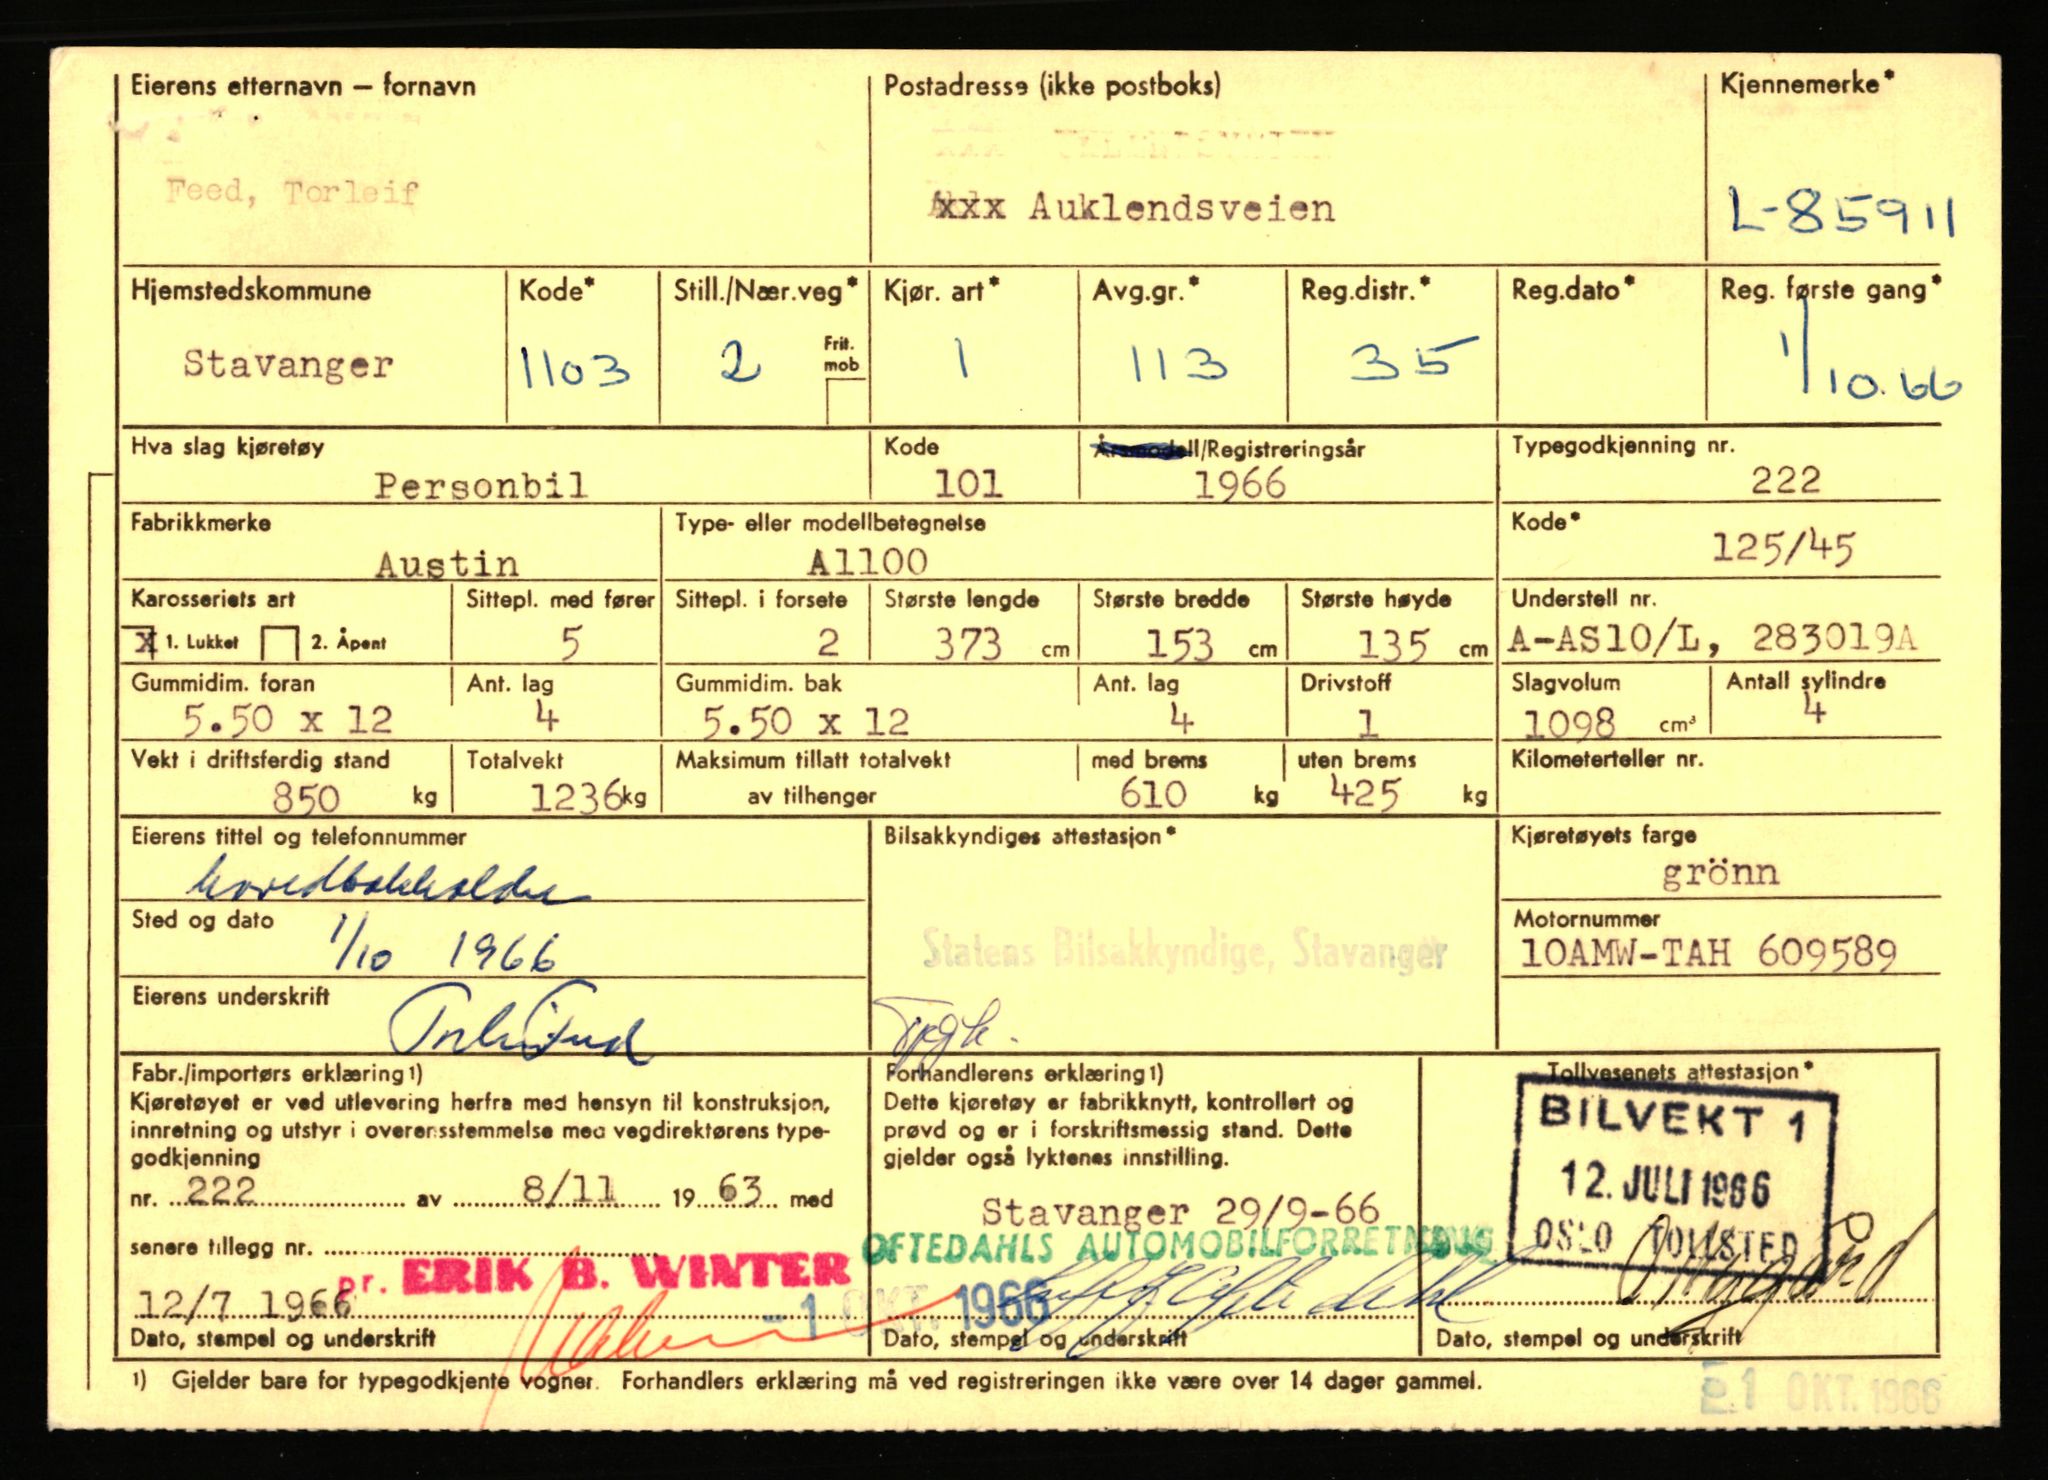 Eierens etternavn – fornavn
Postadresse (ikke postboks)
Kjennemerke*
Feed, Torleif
xxx Auklendsveien
L-85911
Hjemstedskommune
Kode*
Still./Nær.veg*
Kjør. art*
Avg.gr.*
Reg.distr.*
Reg.dato*
Reg. første gang*
Stavanger
1103
2
Frit. mob
1
113
35
1/10.66
Hva slag kjøretøy
Personbil
Kode
101
Årsmodell/Registreringsår
1966
Typegodkjenning nr.
222
Fabrikkmerke
Austin
Type- eller modellbetegnelse
A1100
Kode*
125/45
Karosseriets art
x 1. Lukket 2. Åpent
Sittepl. med fører
5
Sittepl. i forsete
2
Største lengde
373 cm
Største bredde
153 cm
Største høyde
135 cm
Understell nr.
A-AS10/L, 283019A
Gummidim. foran
5.50 x 12
Ant. lag
4
Gummidim. bak
5.50 x 12
Ant. lag
4
Drivstoff
1
Slagvolum
1098 cm³
Antall sylindre
4
Vekt i driftsferdig stand
850 kg
Totalvekt
1236 kg
Maksimum tillatt totalvekt
av tilhenger
med brems
610 kg
uten brems
425 kg
Kilometerteller nr.
Eierens tittel og telefonnummer
hovedbokholder
Bilsakkyndiges attestasjon*
Kjøretøyets farge
grönn
Sted og dato
1/10 1966
Statens Bilsakkyndige, Stavanger
Motornummer
10AMW-TAH 609589
Eierens underskrift
Torleif Feed
Fabr./importørs erklæring 1)
Kjøretøyet er ved utlevering herfra med hensyn til konstruksjon,
innretning og utstyr i overensstemmelse med vegdirektørens type-
godkjenning
nr. 222 av 8/11 1963 med
senere tillegg nr.
pr. ERIK B. WINTER
12/7 1966
Dato, stempel og underskrift
Forhandlerens erklæring 1)
Dette kjøretøy er fabrikknytt, kontrollert og
prøvd og er i forskriftsmessig stand. Dette
gjelder også lyktenes innstilling.
Stavanger 29/9-66
OFTEDAHLS AUTOMOBILFORRETNING
-1 OKT. 1966
Dato, stempel og underskrift
Tollvesenets attestasjon*
BILVEKT 1
12. JULI 1966
OSLO TOLLSTED
Dato, stempel og underskrift
1) Gjelder bare for typegodkjente vogner. Forhandlers erklæring må ved registreringen ikke være over 14 dager gammel.
1 OKT. 1966